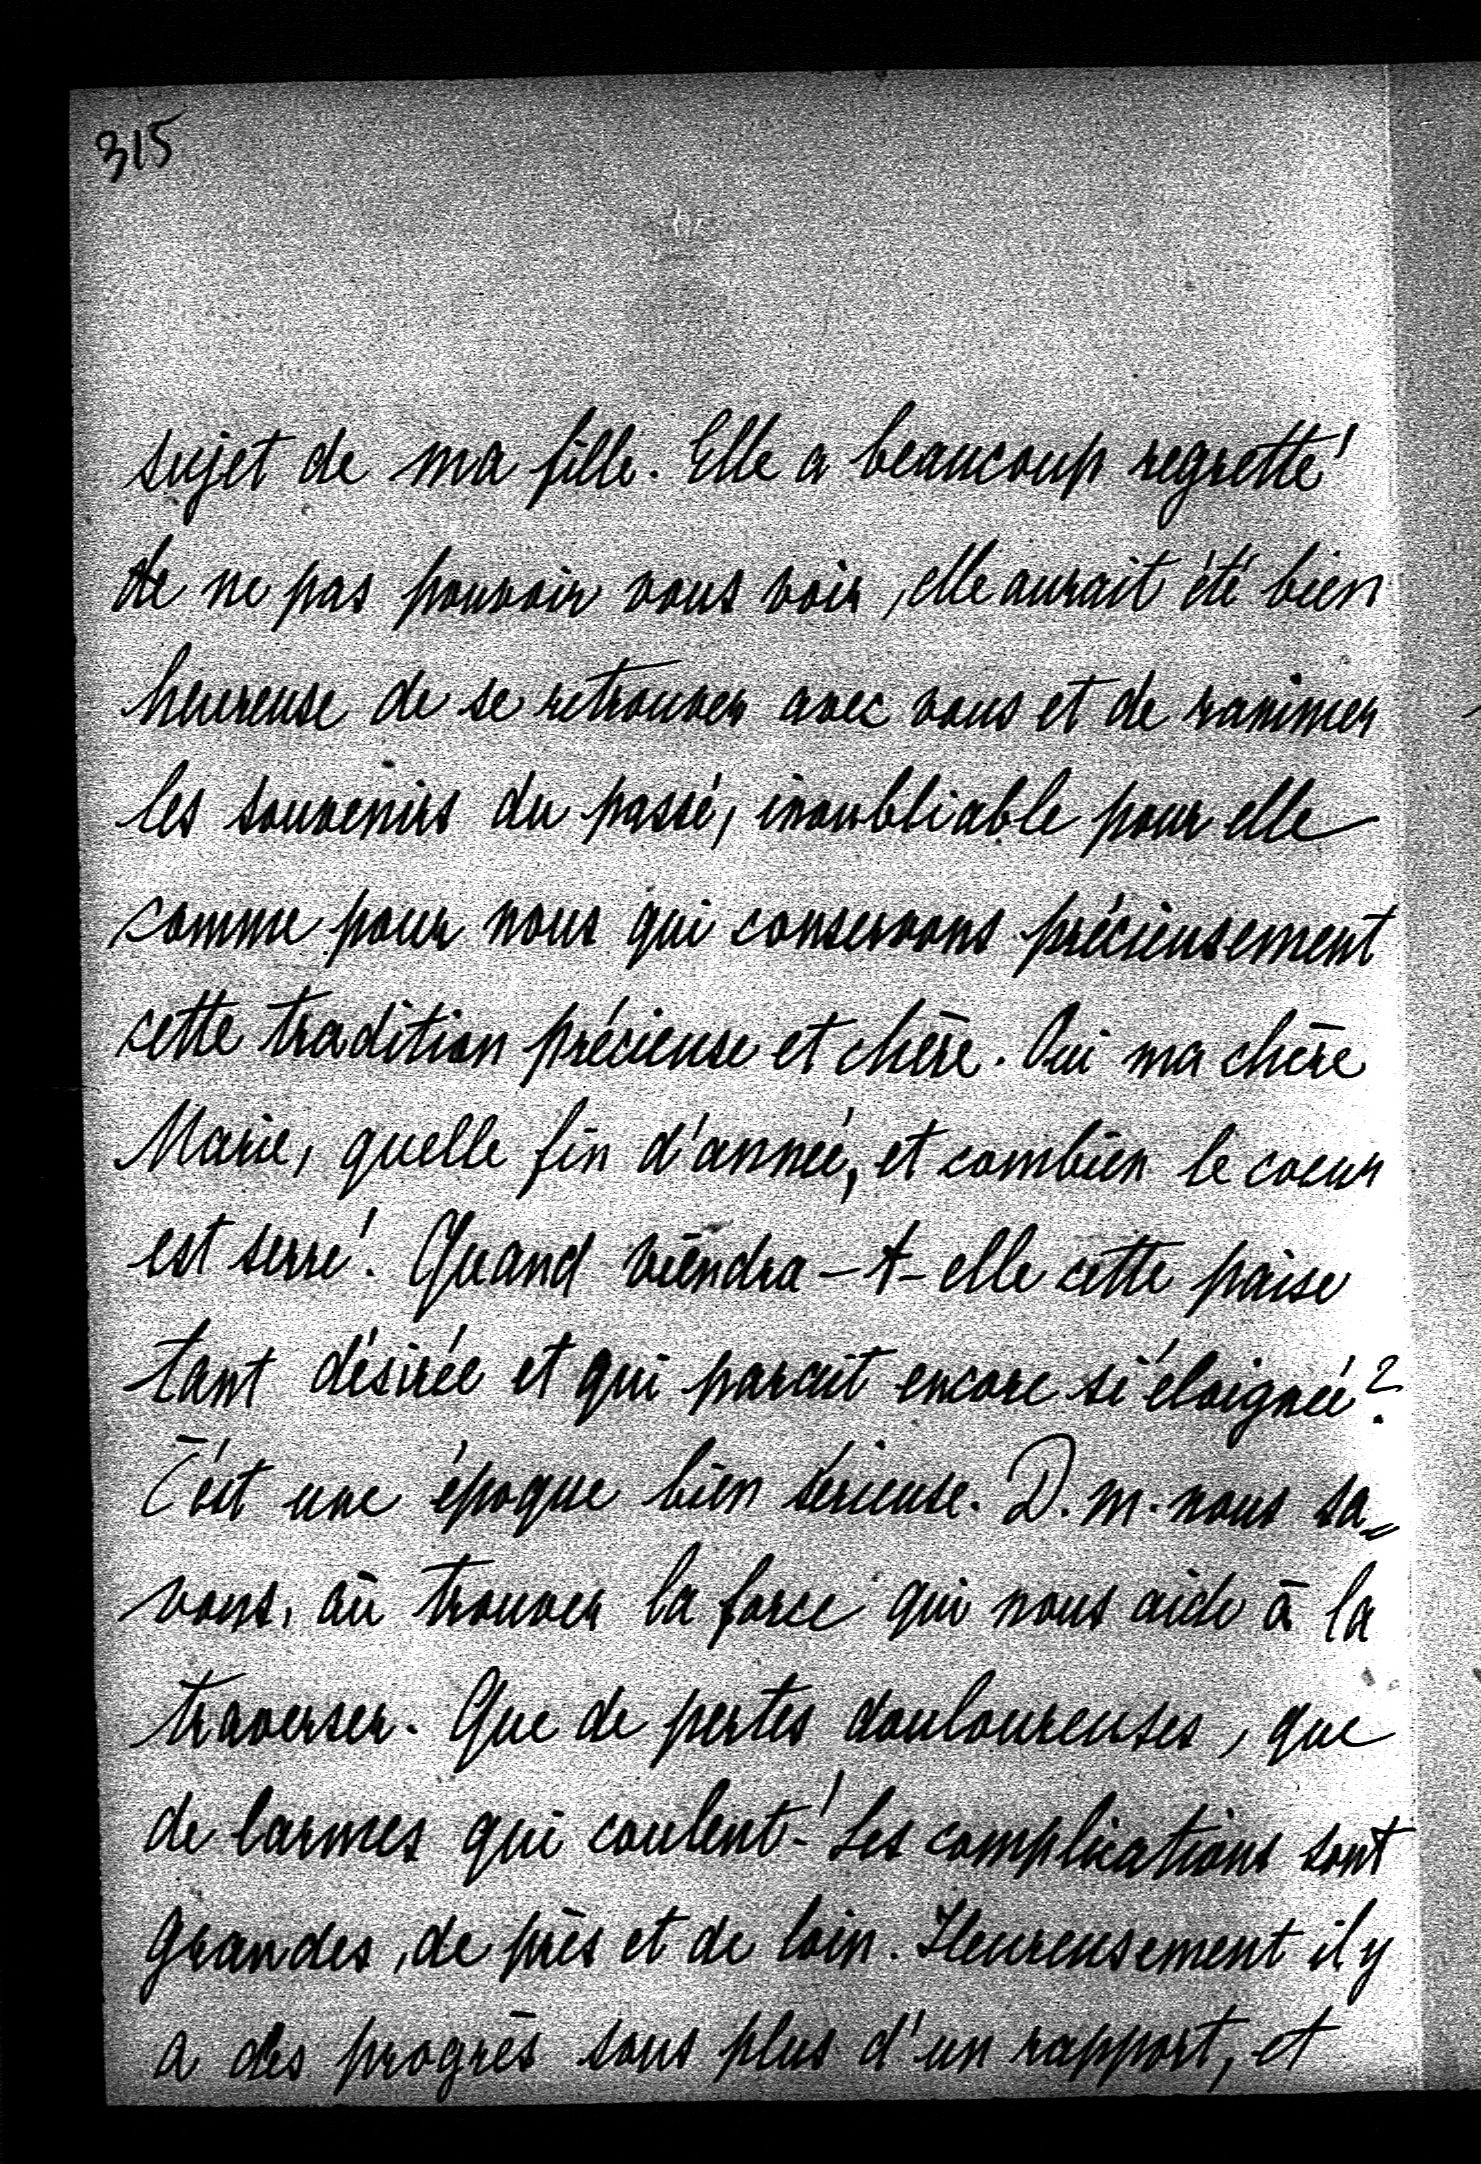 315
sujet de ma fille. Elle a beaucoup regretté
de ne pas pouvoir vous voir, elle aurait été bien
heureuse de se retrouver avec vous et de ranimer
les souvenirs du passé, inoubliable pour elle
comme pour nous qui conservons précieusement
cette tradition précieuse et chère. Oui ma chère
Marie, quelle fin d'année, et combien le coeur
est serré! Quand viendra-t-elle cette paise
tant désirée et qui parait encore si éloignée?
C'ést une époque bien sérieuse. D. m. nous sa=
vons, où trouver la force qui nous aide à la
traverser. Que de pertes douloureuses, que
de larmes qui coulent! Les complications sont
grandes, de près et de loin. Heureusement il y
a des progrès sous plus d'un rapport, et